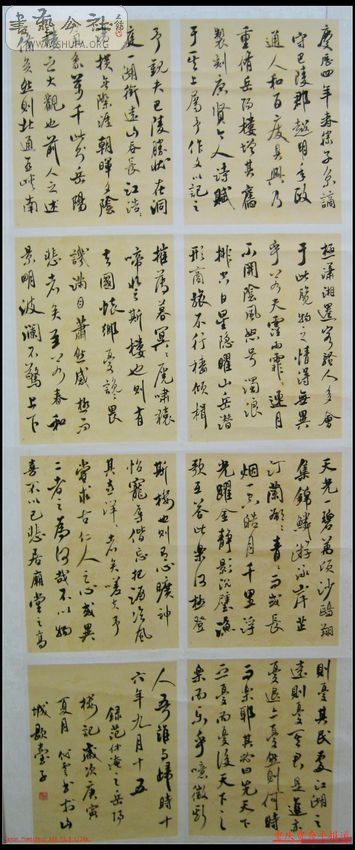 書藝公社
WWW.SHUFA.ORG
慶曆四年春滕子京謫
守巴陵郡越明年政
通人和百廢具興乃
重修岳陽樓增其舊
製刻唐賢今人詩賦
于其上屬予作文以記之
予觀夫巴陵勝狀在洞
庭一湖銜遠山吞長江浩
橫無際涯朝暉夕陰
氣象萬千此則岳陽
樓之大觀也前人之述
備矣然則北通巫峽南
極瀟湘遷客騷人多會
于此覽物之情得無異
乎若夫霪雨霏霏連月
不開陰風怒号濁浪
排空日星隱曜山岳潛
形商旅不行檣傾楫
摧薄暮冥冥虎嘯猿
啼登斯樓也則有
去國懷鄉憂讒畏
譏滿目蕭然感極而
悲者矣至若春和
景明波瀾不驚上下
天光一碧萬頃沙鷗翔
集錦鱗游泳岸芷
汀蘭郁郁青青而或長
烟一空皓月千里浮
光躍金靜影沉璧漁
歌互答此樂何極登
斯樓也則有心曠神
怡寵辱偕忘把酒臨風
其喜洋洋者矣嗟夫予
嘗求古仁人之心或異
二者之為何哉不以物
喜不以己悲居廟堂之高
則憂其民處江湖之
遠則憂其君是進亦
憂退亦憂然則何時
而樂耶其必曰先天下
之憂而憂後天下之
樂而樂乎噫微斯
人吾誰與歸時十
六年九月十五
錄范仲淹之岳陽
樓記歲次庚寅
夏月書於山
城歌臺子